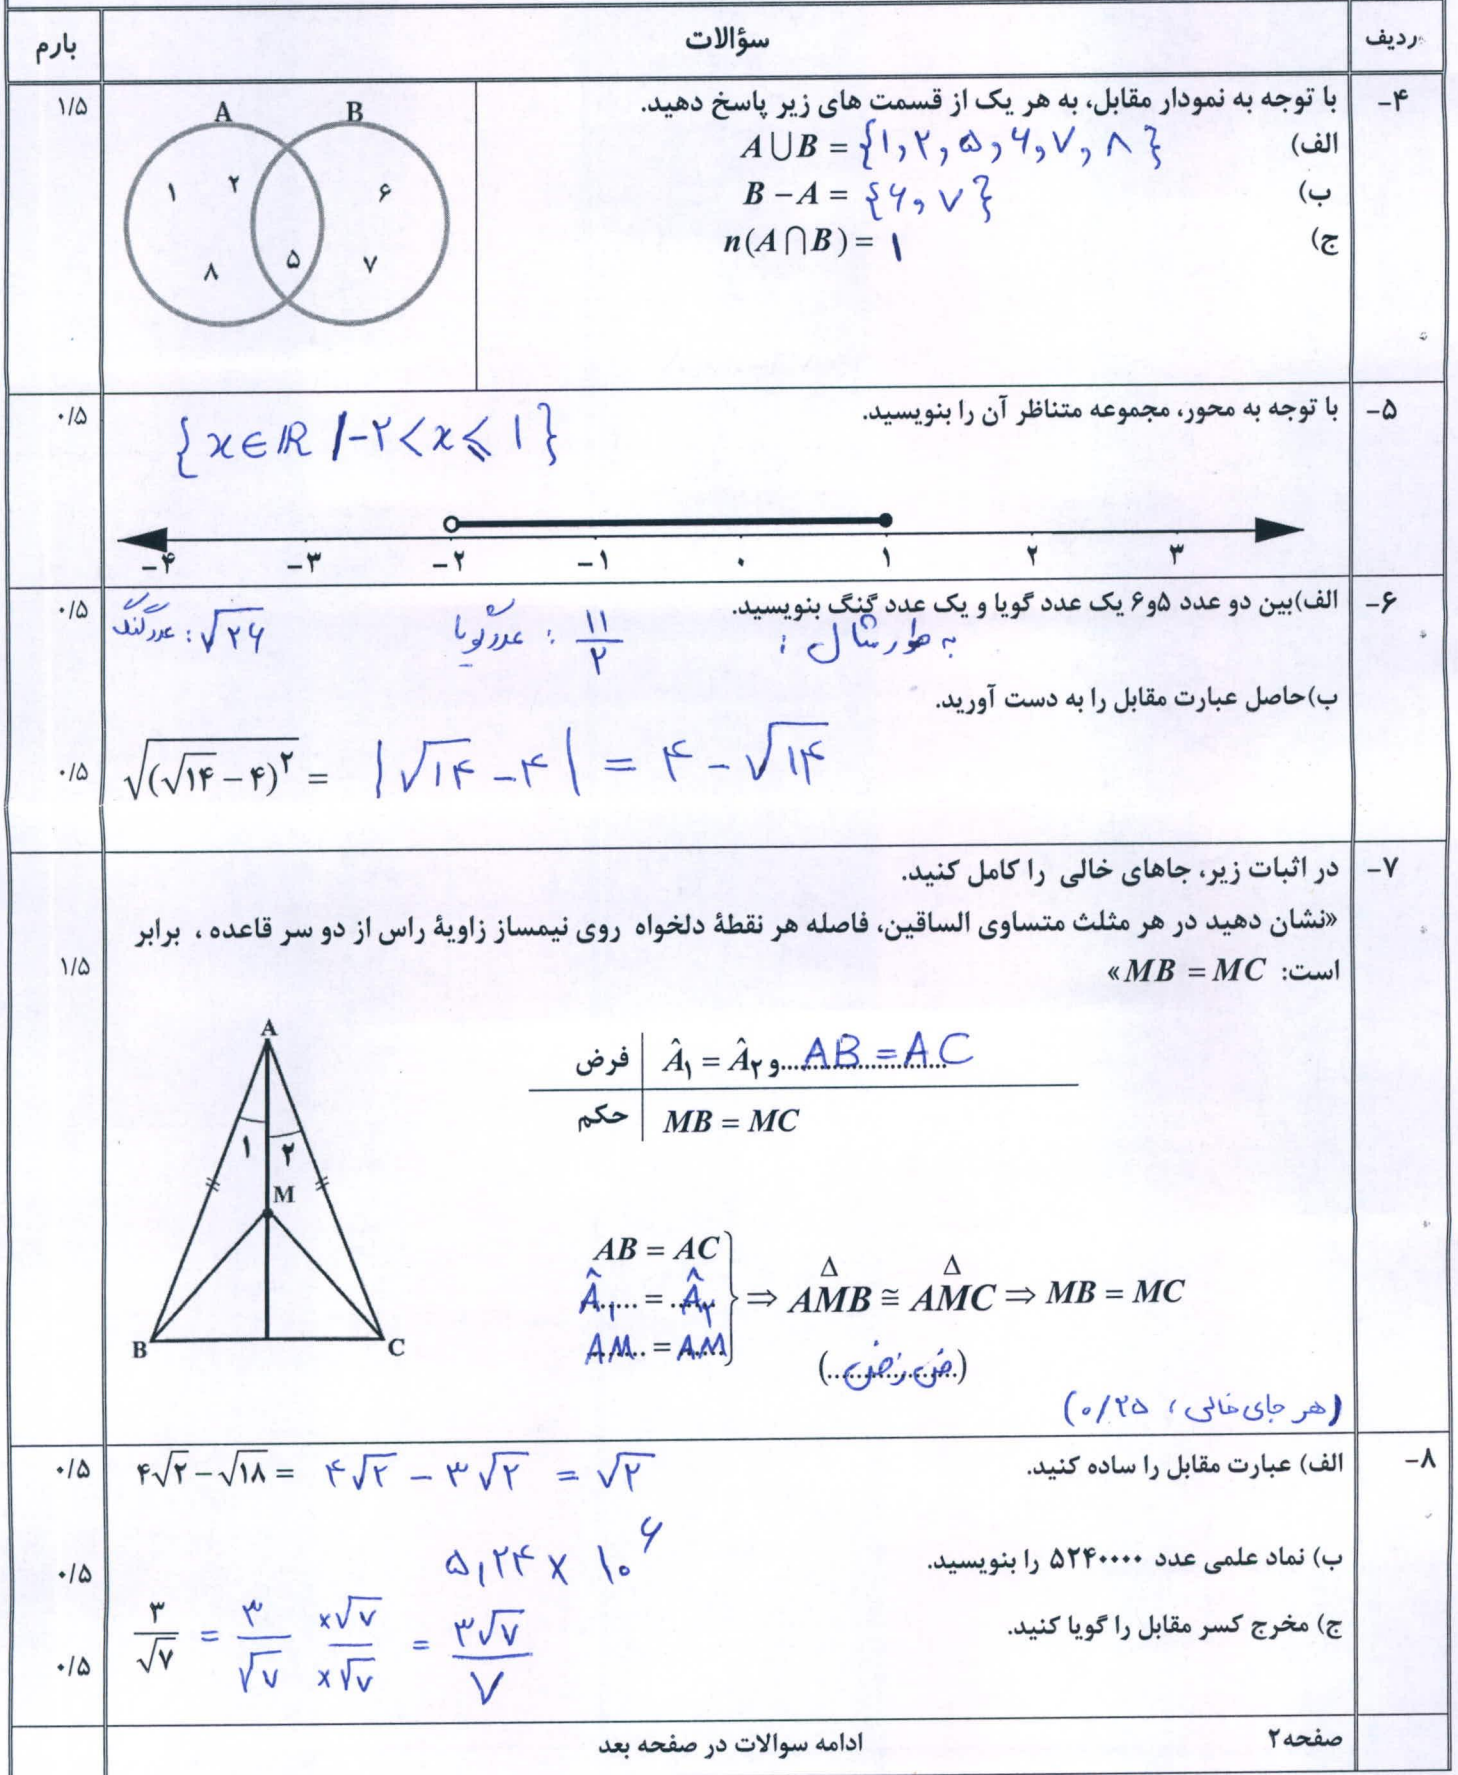 ردیف سؤالات بارم
۴- با توجه به نمودار مقابل، به هر یک از قسمت های زیر پاسخ دهید. ۱/۵
الف) A∪B = {۱, ۲, ۵, ۶, ۷, ۸}
ب) B − A = {۶, ۷}
ج) n(A∩B) = ۱
A B
۱ ۲ ۶
۸ ۵ ۷
۵- با توجه به محور، مجموعه متناظر آن را بنویسید. ۰/۵
{x∈ℝ | −۲ < x ⩽ ۱}
−۴ −۳ −۲ −۱ ۰ ۱ ۲ ۳
۶- الف)بین دو عدد ۵و۶ یک عدد گویا و یک عدد گنگ بنویسید. ۰/۵
به طور مثال : ۱۱/۲ : عدد گویا √۲۶ : عدد گنگ
ب)حاصل عبارت مقابل را به دست آورید.
√((√۱۴ − ۴)^۲) = |√۱۴ − ۴| = ۴ − √۱۴ ۰/۵
۷- در اثبات زیر، جاهای خالی را کامل کنید.
«نشان دهید در هر مثلث متساوی الساقین، فاصله هر نقطهٔ دلخواه روی نیمساز زاویهٔ راس از دو سر قاعده ، برابر
است: MB = MC» ۱/۵
فرض | Â۱ = Â۲ و AB = AC
حکم | MB = MC
A
۱ ۲
M
B C
AB = AC
Â۱ = Â۲ ⇒ AMB ≅ AMC ⇒ MB = MC
Δ Δ
AM = AM
(ض ز ض)
(هر جای خالی ، ۰/۲۵)
۸- الف) عبارت مقابل را ساده کنید. ۰/۵
۴√۲ − √۱۸ = ۴√۲ − ۳√۲ = √۲
ب) نماد علمی عدد ۵۲۴۰۰۰۰ را بنویسید. ۰/۵
۵,۲۴ × ۱۰^۶
ج) مخرج کسر مقابل را گویا کنید. ۰/۵
۳/√۷ = ۳/√۷ ×√۷/×√۷ = ۳√۷/۷
صفحه۲ ادامه سوالات در صفحه بعد